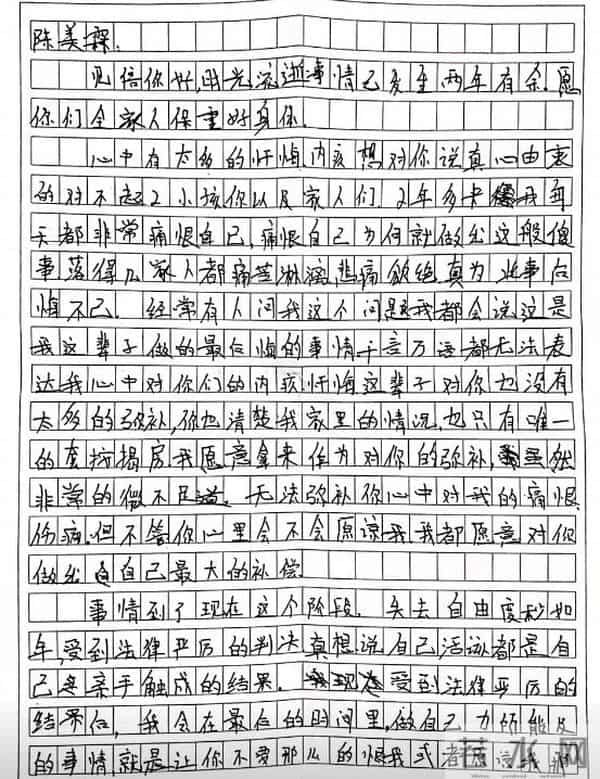 陈美霖.
见信你好,时光流逝事情已发生两年有余.愿
你们全家人保重好身体.
心中有太多的忏悔内疚想对你说真心由衷
的对不起2小孩你以及家人们.2年多来我每
天都非常痛恨自己,痛恨自己为何就做出这般傻
事落得几家人都痛苦淋漓悲痛欲绝真为此事后
悔不己. 经常有人问我这个问题我都会说这是
我这辈子做的最后悔的事情千言万语都无法表
达我心中对你们的内疚忏悔这辈子对你也没有
太多的弥补,你也清楚我家里的情况,也只有唯一
的套按揭房我愿意拿来作为对你的弥补,虽然
非常的微不足道. 无法弥补你心中对我的痛恨
伤病.但不管你心里会不会原谅我我都愿意对你
做出自己最大的补偿.
事情到了现在这个阶段. 失去自由度秒如
年,受到法律严厉的判决真想说自己活该都是自
己亲手触成的结果. 现在受到法律严厉的
结果后, 我会在最后的时间里,做自己力所能及
的事情,就是让你不要那么的恨我或者